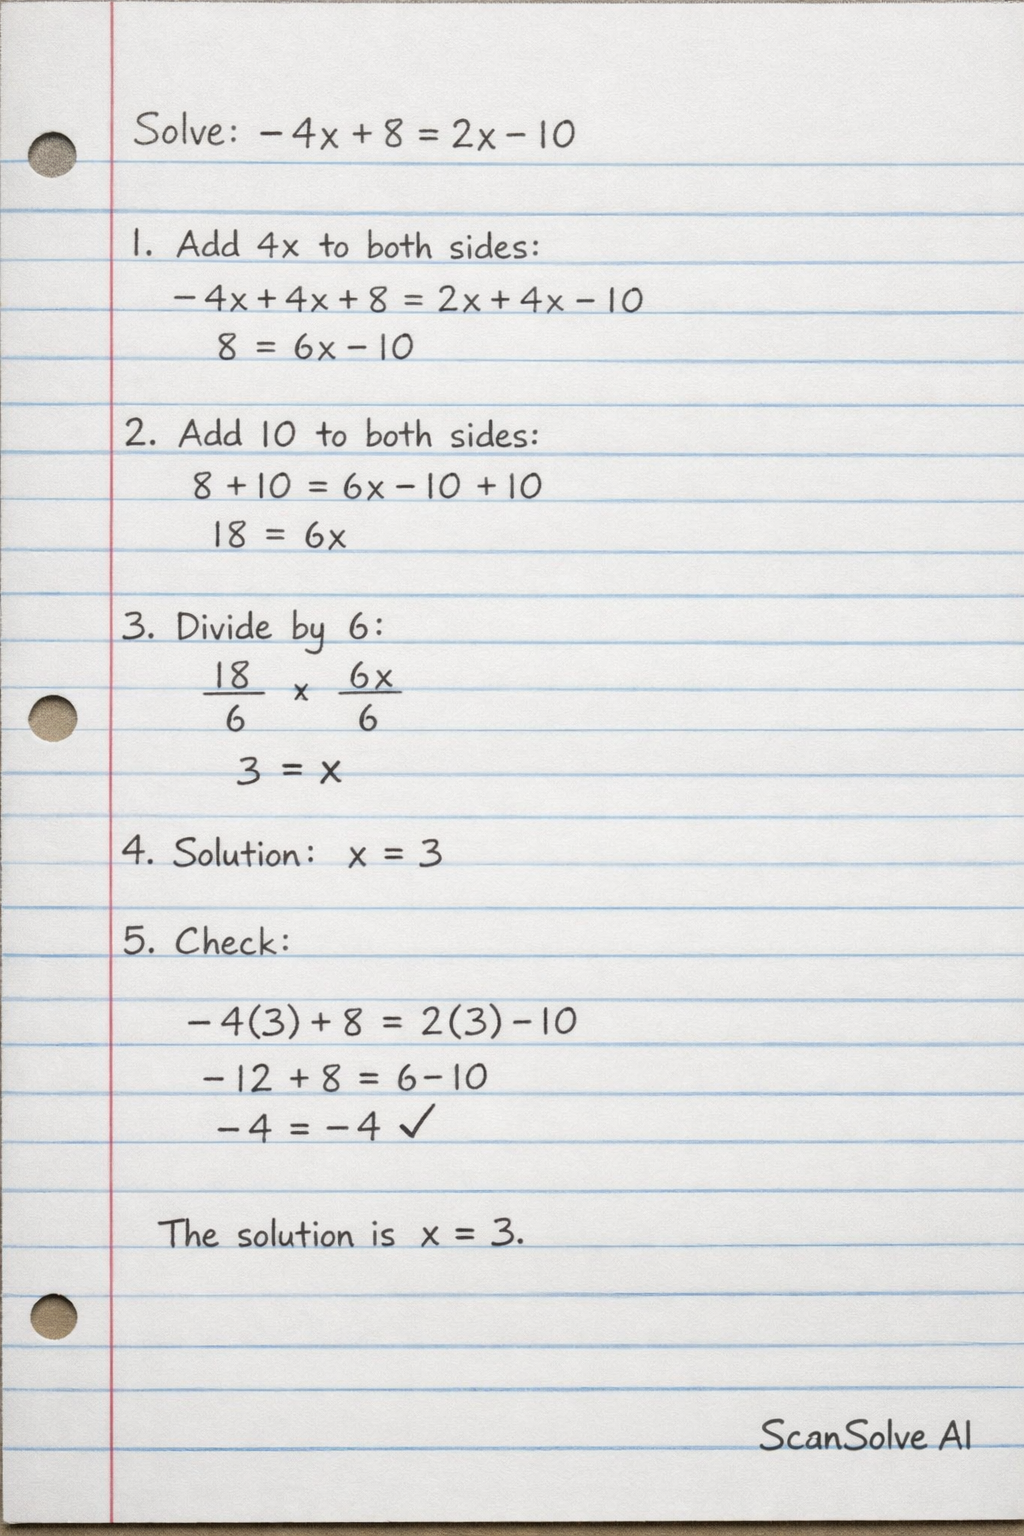 Solve: −4x + 8 = 2x − 10
1. Add 4x to both sides:
−4x + 4x + 8 = 2x + 4x − 10
8 = 6x − 10
2. Add 10 to both sides:
8 + 10 = 6x − 10 + 10
18 = 6x
3. Divide by 6:
18/6 x 6x/6
3 = x
4. Solution: x = 3
5. Check:
−4(3) + 8 = 2(3) − 10
−12 + 8 = 6 − 10
−4 = −4 ✓
The solution is x = 3.
ScanSolve AI